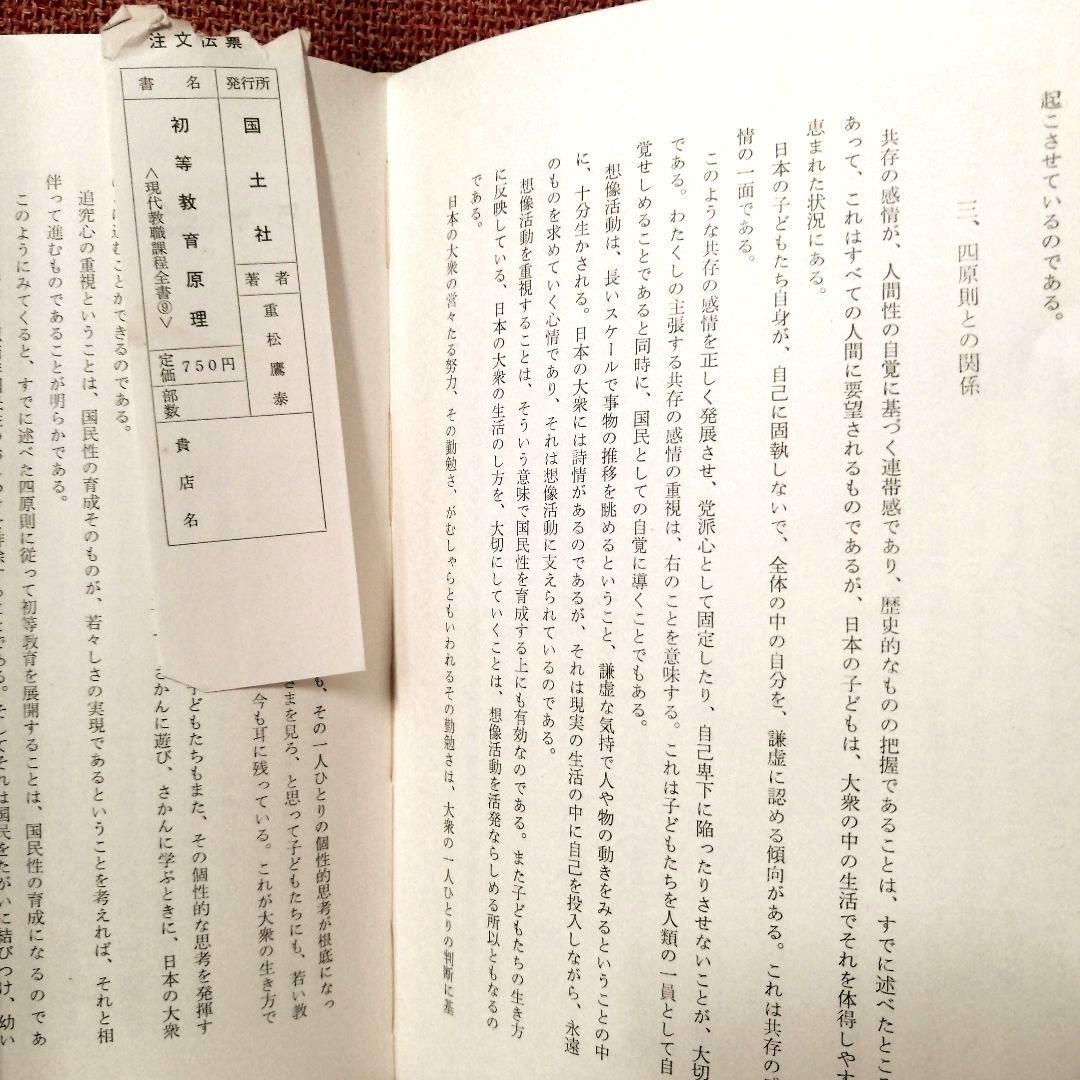 起こさせているのである。
三、四原則との関係
共存の感情が、人間性の自覚に基づく連帯感であり、歴史的なものの把握であることは、すでに述べたとこ
あって、これはすべての人間に要望されるものであるが、日本の子どもは、大衆の中の生活でそれを体得しやす
恵まれた状況にある。
日本の子どもたち自身が、自己に固執しないで、全体の中の自分を、謙虚に認める傾向がある。これは共存の
情の一面である。
このような共存の感情を正しく発展させ、党派心として固定したり、自己卑下に陥ったりさせないことが、大切
である。わたくしの主張する共存の感情の重視は、右のことを意味する。これは子どもたちを人類の一員として自
覚せしめることであると同時に、国民としての自覚に導くことでもある。
想像活動は、長いスケールで事物の推移を眺めるということ、謙虚な気持で人や物の動きをみるということの中
に、十分生かされる。日本の大衆には詩情があるのであるが、それは現実の生活の中に自己を投入しながら、永遠
のものを求めていく心情であり、それは想像活動に支えられているのである。
想像活動を重視することは、そういう意味で国民性を育成する上にも有効なのである。また子どもたちの生き方
に反映している、日本の大衆の生活のし方を、大切にしていくことは、想像活動を活発ならしめる所以ともなるの
である。
日本の大衆の営々たる努力、その勤勉さ、がむしゃらともいわれるその勤勉さは、大衆の一人ひとりの判断に基
注文伝票
発行所
国土社
著者
重松鷹泰
書名
初等教育原理
〈現代教職課程全書⑨〉
定価
750円
部数
貴店名
も、その一人ひとりの個性的思考が根底になっ
さまを見ろ、と思って子どもたちにも、若い教
今も耳に残っている。これが大衆の生き方で
子どもたちもまた、その個性的な思考を発揮す
さかんに遊び、さかんに学ぶときに、日本の大衆
むことができるのである。
追究心の重視ということは、国民性の育成そのものが、若々しさの実現であるということを考えれば、それと相
伴って進むものであることが明らかである。
このようにみてくると、すでに述べた四原則に従って初等教育を展開することは、国民性の育成になるのであ
ことである。そしてそれは国民をたがいに結びつけ、幼い